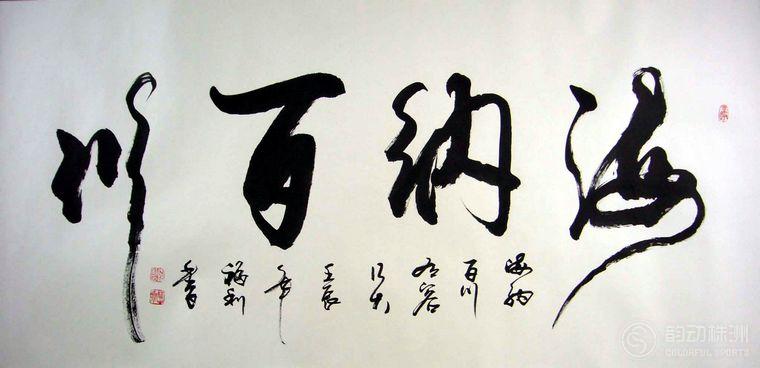 海纳百川
海纳百川有容乃大壬辰年福利書
韵动株洲
COLORFUL SPORTS